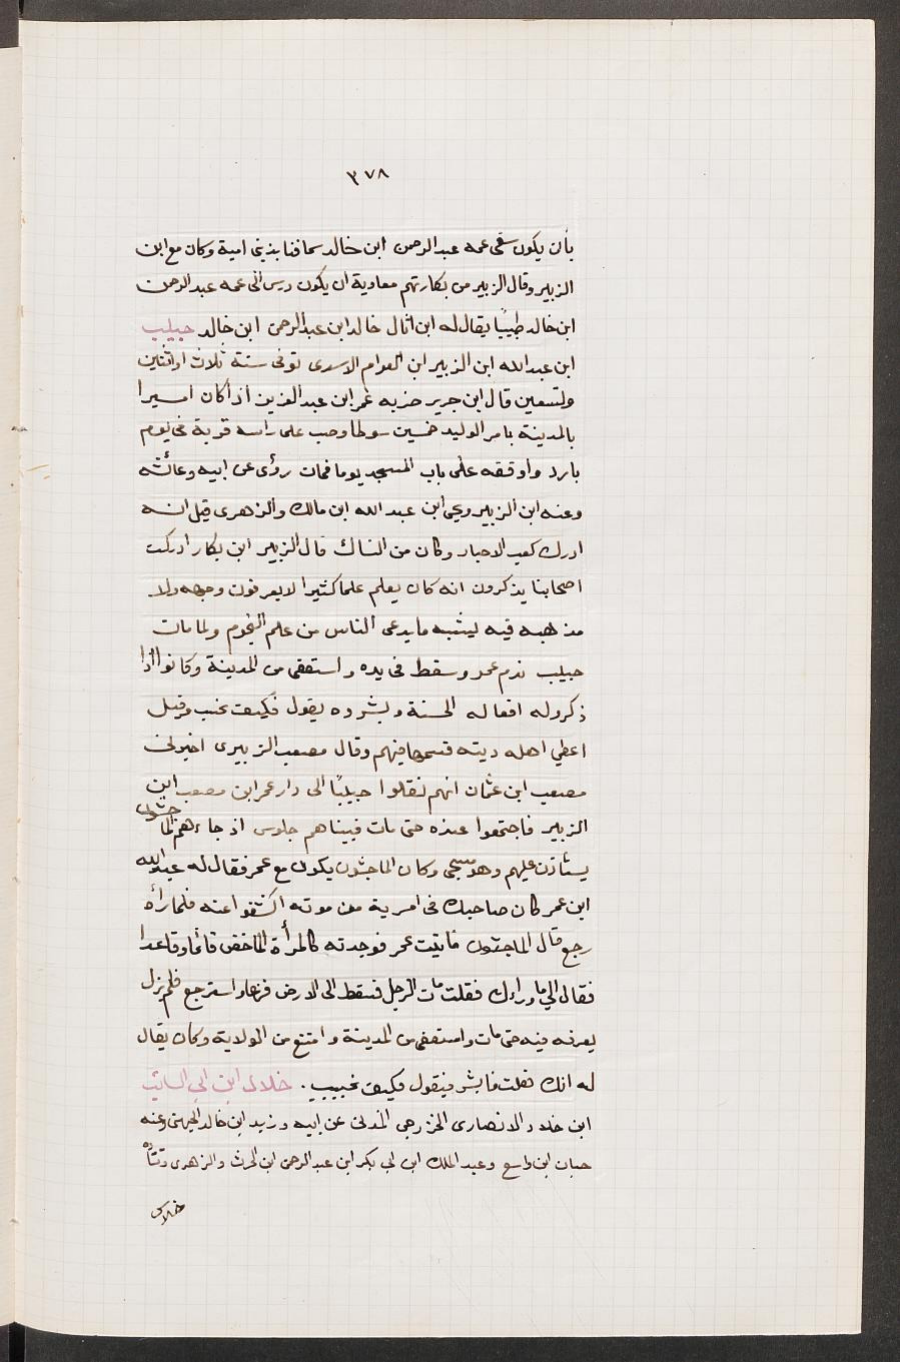 ٣٧٨
بأن يكون سقى عمه عبد الرحمن ابن خالد سما فنا بذني امية وكان مع ابن
الزبير وقال الزبير من بكار تهم معاوية ان يكون درس الى عمه عبد الرحمن
ابن خالد طبيبا يقال له ابن اثال خالد ابن عبد الرحمن ابن خالد حبيب
ابن عبد الله ابن الزبير ابن العوام الاسدى توفى سنة ثلاث او اثنين
وتسعين قال ابن جرير ضربه عمر ابن عبد العزيز اذ كان اميرا
بالمدينة بامر الوليد خمسين سوطا وصب على راسه قربة فى يوم
بارد واوقفه على باب المسجد يوما فمات روى عن ابيه وعائشه
وعنه ابن الزبير ويحى ابن عبد الله ابن مالك والزهرى قيل انه
ادرك كعب الاحبار وكان من النساك قال الزبير ابن بكار ادركت
اصحابنا يذكرون انه كان يعلم علما كثيرا لا يعرفون وجهه ولا
مذهبه فيه ليشبه ما يدعى الناس من علم النجوم ولما مات
حبيب ندم عمر وسقط فى يده واستعفى من المدينة وكانوا اذا
ذكروا له افعاله الحسنة وبشروه يقول فكيف بخبيب وقيل
اعطي اهله ديته قسمها فيهم وقال مصعب الزبيرى اخبرنى
مصعب ابن عثمان انهم نقلوا حبيبا الى دار عمر ابن مصعب ابن
الزبير فاجتمعوا عنده حتى مات فبيناهم جلوس اذ جاءهم الماجشون
يستاذن عليهم وهو مسجى وكان الماجشون يكون مع عمر فقال له عبد الله
ابن عمر كان صاحبك فى امرية من موته اكشفوا عنه فلما رأه
رجع قال الماجشون فاتيت عمر فوجدته كالمرأة الماخض قائما وقاعدا
فقال الي ما وراءك فقلت مات الرجل فسقط الى الارض فزعا واسترجع فلم يزل
يعرفه فيه حتى مات واستعفى من المدينة وامتنع من الولاية وكان يقال
له انك فعلت فابشر فيقول فكيف بخبيب . خلاد ابن ابي السائب
ابن خلاد الانصارى الخزرجى المدنى عن ابيه وزيد ابن خالد الجهنى وعنه
حبان ابن واسع وعبد الملك ابن ابي بكر ابن عبد الرحمن ابن الحرث والزهرى وقتاده
خلاس